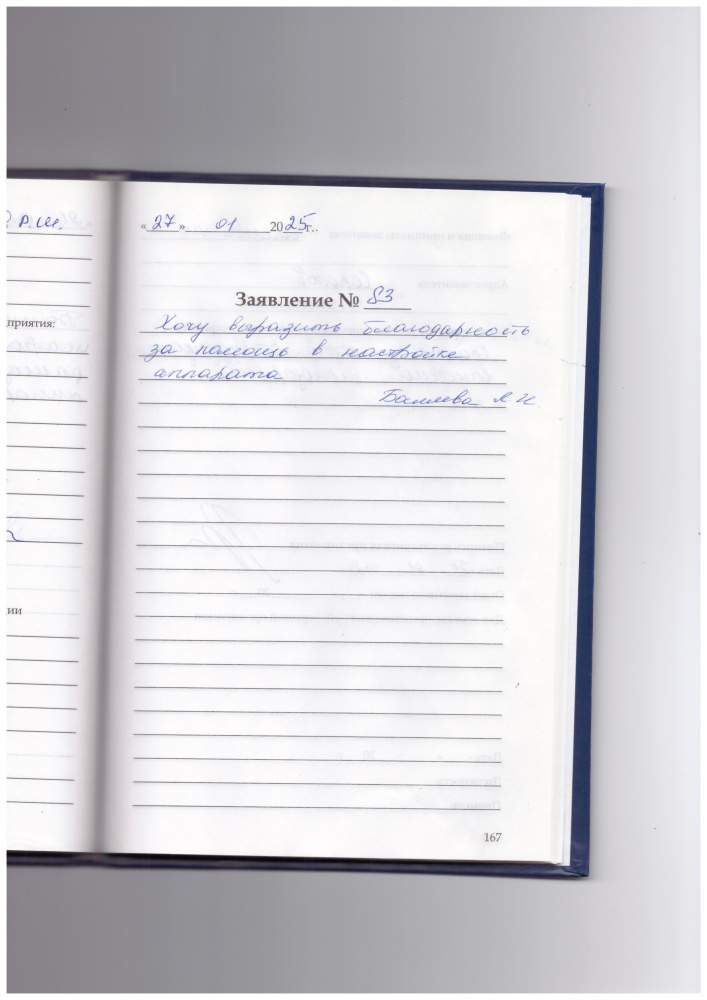 Р.Ш.
приятия:
ии
«27» 01 2025г..
Заявление № 83
Хочу выразить благодарность
за помощь в настройке
аппарата
167